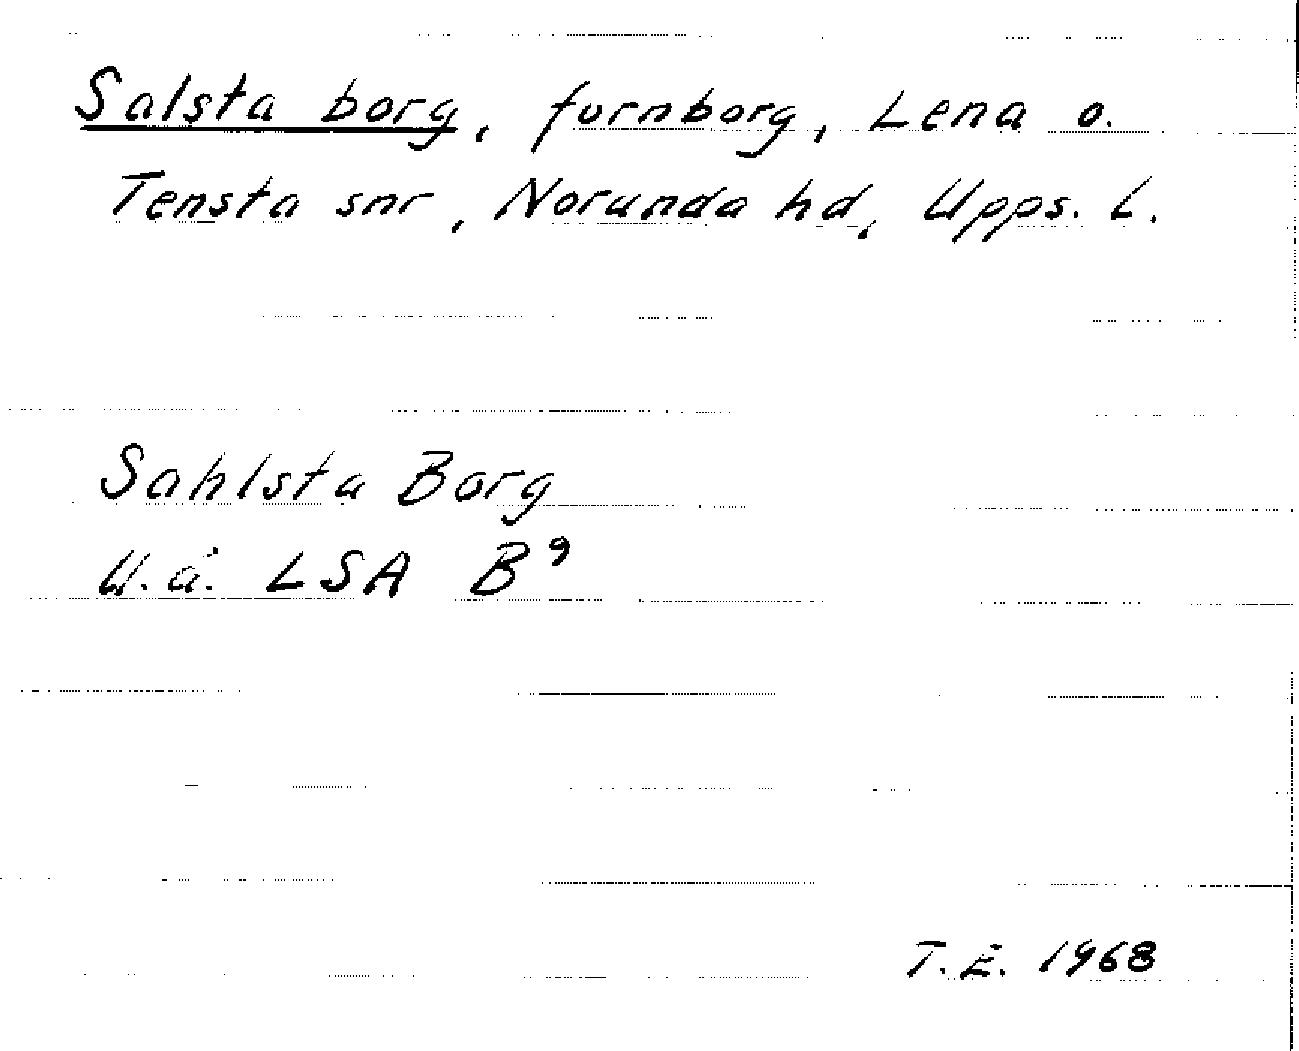 Salsta borg, fornborg, Lena o.
Tensta snr, Norunda hd, Upps. L.
Sahlsta Borg
U.å. LSA B⁹
T.E. 1968